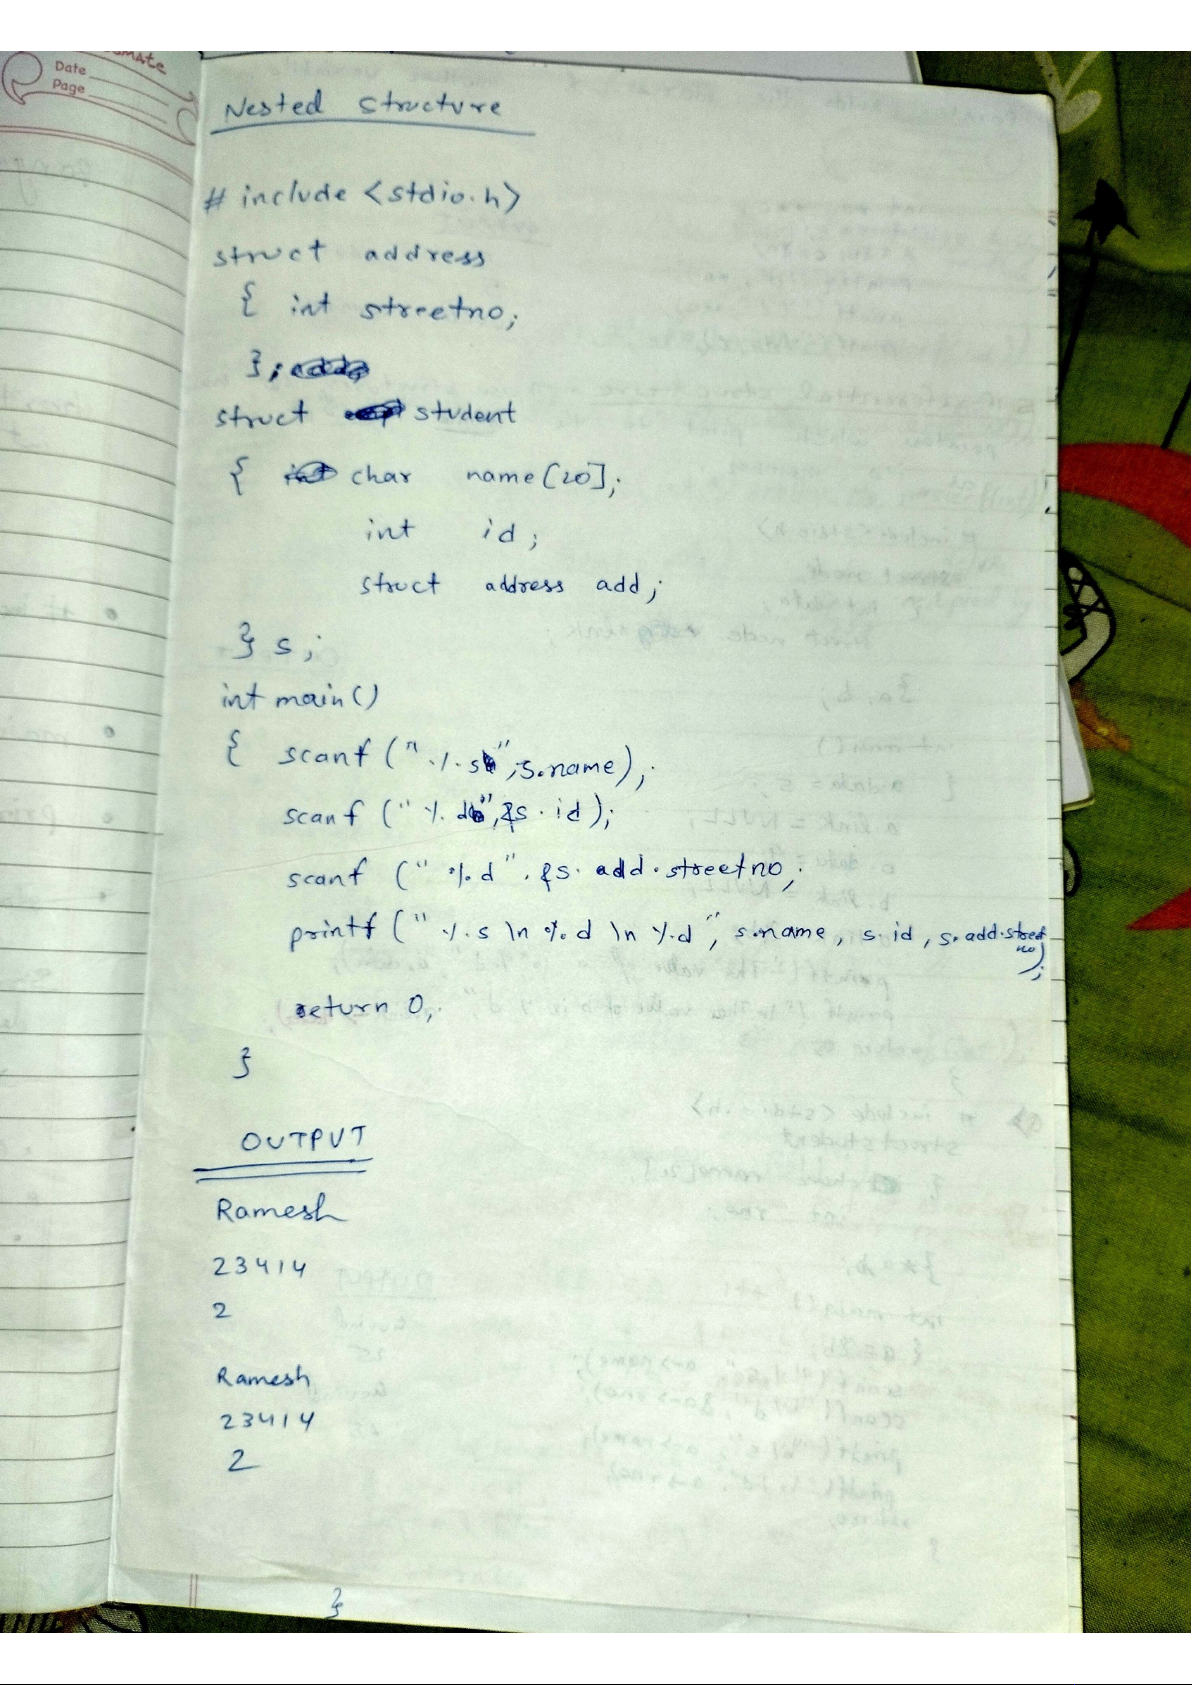 Date
Page
Nested structure
# include <stdio.h>
struct address
{ int streetno;
};
struct student
{ char name[20];
int id;
struct address add;
} s;
int main()
{ scanf ("%s", s.name);
scanf ("%d", &s.id);
scanf ("%d", &s.add.streetno;
printf ("%s \n %d \n %d", s.name, s.id, s.add.street
no);
return 0;
}
OUTPUT
Ramesh
23414
2
Ramesh
23414
2
}